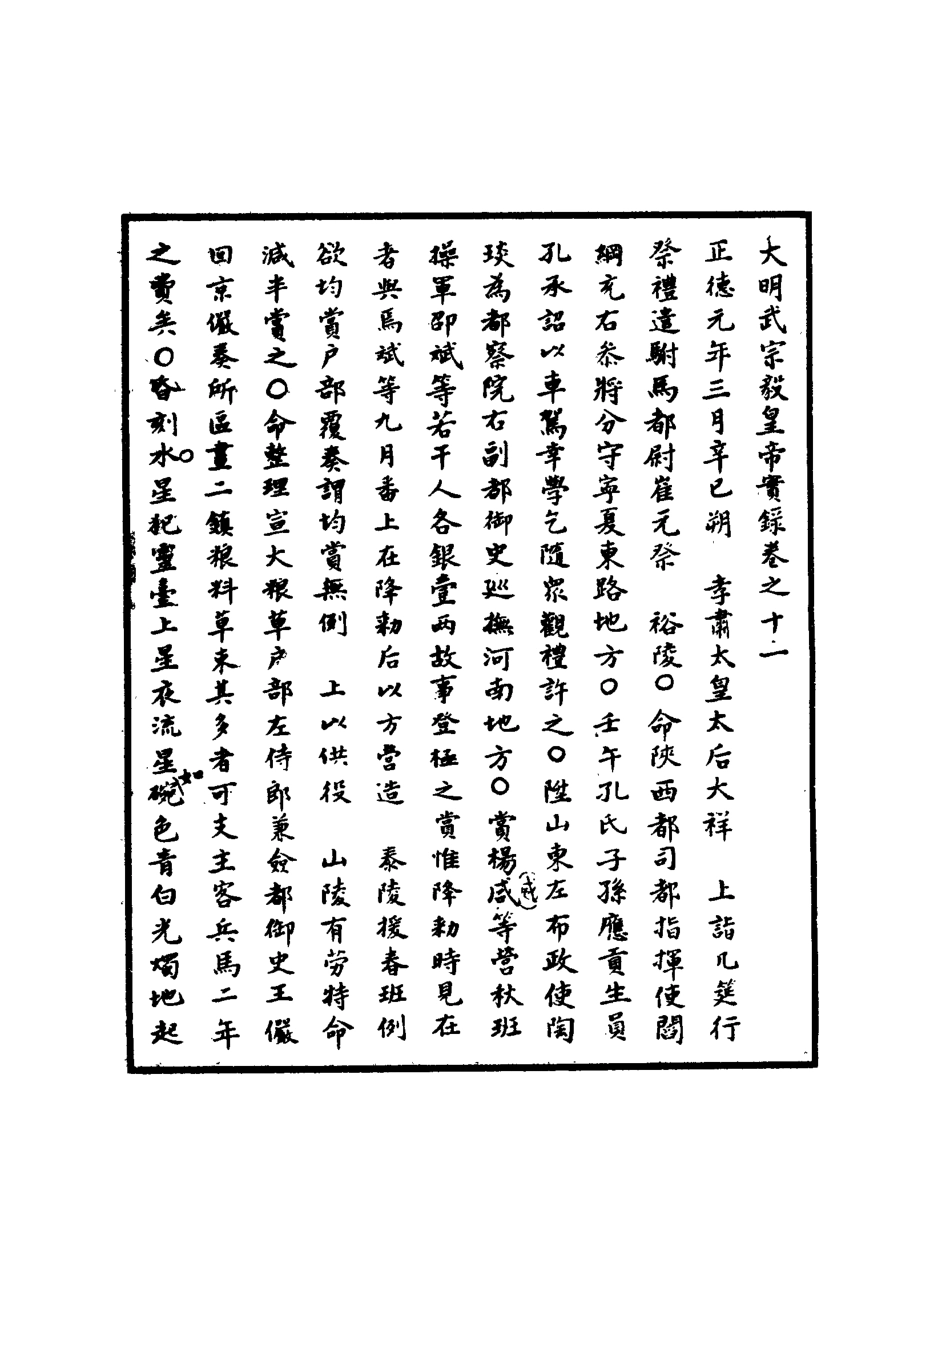 大明武宗毅皇帝實錄卷之十二
正德元年三月辛巳朔 孝肅太皇太后大祥 上詣几筵行
祭禮遣駙馬都尉崔元祭 裕陵○命陝西都司都指揮使閻
綱充右叅將分守寧夏東路地方○壬午孔氏子孫應貢生員
孔承詔以車駕幸學乞隨眾觀禮許之○陞山東左布政使陶
琰為都察院右副都御史廵撫河南地方○賞楊咸(咸)等營秋班
操軍邵斌等若干人各銀壹兩故事登極之賞惟降勑時見在
者與馬斌等九月畨上在降勑后以方營造 泰陵援春班例
欲均賞户部覆奏謂均賞無例 上以供役 山陵有劳特命
減半賞之○命整理宣大粮草户部左侍郎兼僉都御史王儼
回京儼奏所區畫二鎮粮料草束其多者可支主客兵馬二年
之費矣○昏刻水○星犯靈臺上星夜流星如碗色青白光燭地起